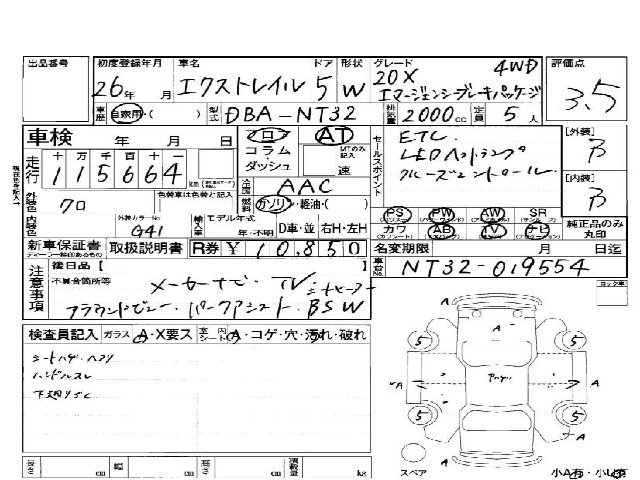 出品番号 初度登録年月 車名 ドア 形状 グレード 評価点
26年 月 エクストレイル 5 W 20X 4WD
エマージェンシーブレーキパッケージ
3.5
車歴 自家用・( ) 型式 DBA-NT32 排気量 2000cc 定員 5人
車検 年 月 日 フロア AT セールスポイント ETC
コラム MTのみ記入 LEDヘッドランプ
ダッシュ 速 クルーズコントロール
[外装] B
走行 十 万 千 百 十 一
115664 km
冷房 AAC
[内装] B
外装色 クロ 色替車は色替と記入 燃料 ガソリン・軽油・( )
PS PW AW SR
カワ AB TV ナビ
純正品のみ丸印
内装色 外装カラーNo. G41 輸入車 モデル年式 年・不明 D車・並 右H・左H
新車保証書 取扱説明書 R券 ¥10,850 名変期限 月 日迄
注意事項 後日品【
不具合箇所等 メーカーナビ・TV シートヒーター
アラウンドビュー・パークアシスト BSW
車台No. NT32-019554
ロック車
検査員記入 ガラス A・X要ス 室内シート A・コゲ・穴・汚れ・破れ
シートハゲ・ヘコリ
ハンドルスレ
下廻りサビ
A
5 5
A A
5 5
A
長さ cm 幅 cm 高さ cm 積載量 kg
スペア 小A有・小U有